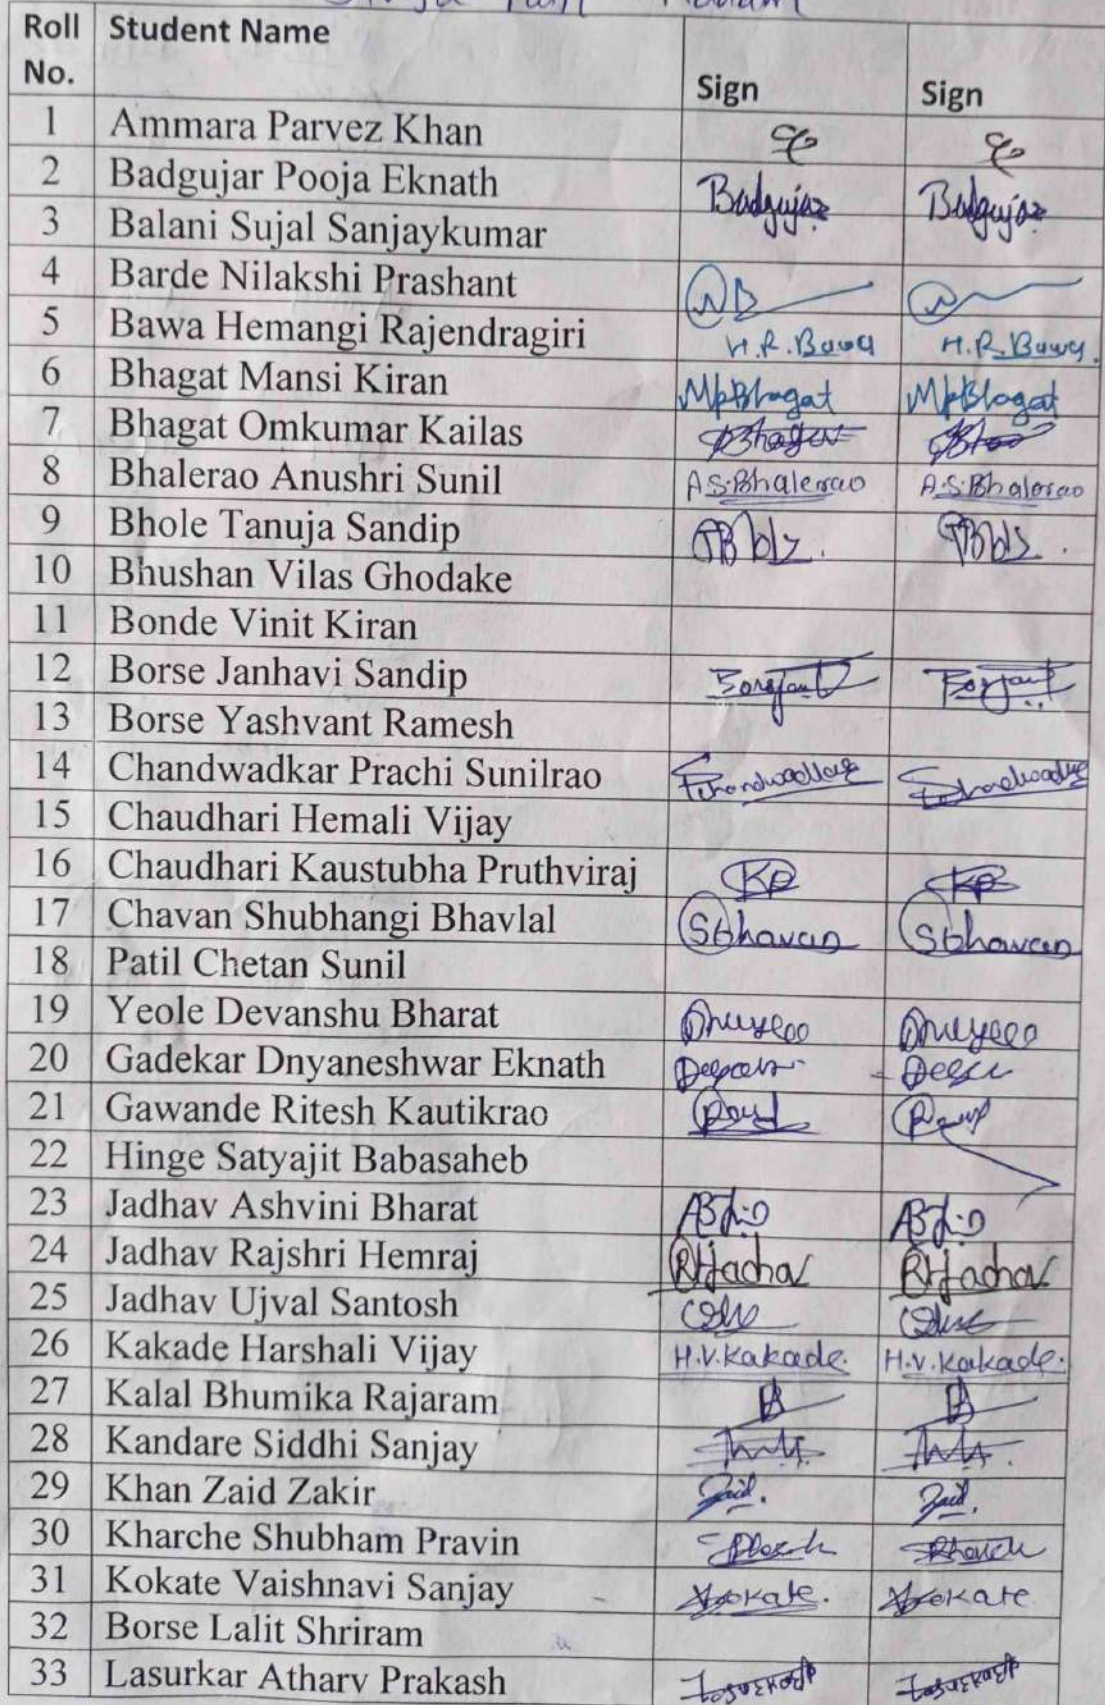 Roll No. Student Name Sign Sign
1 Ammara Parvez Khan
2 Badgujar Pooja Eknath Badgujar Badgujar
3 Balani Sujal Sanjaykumar
4 Barde Nilakshi Prashant
5 Bawa Hemangi Rajendragiri H.R.Bawa H.R.Bawa.
6 Bhagat Mansi Kiran MkBhagat MkBhagat
7 Bhagat Omkumar Kailas
8 Bhalerao Anushri Sunil A.S.Bhalerao A.S.Bhalerao
9 Bhole Tanuja Sandip
10 Bhushan Vilas Ghodake
11 Bonde Vinit Kiran
12 Borse Janhavi Sandip
13 Borse Yashvant Ramesh
14 Chandwadkar Prachi Sunilrao
15 Chaudhari Hemali Vijay
16 Chaudhari Kaustubha Pruthviraj KP KP
17 Chavan Shubhangi Bhavlal
18 Patil Chetan Sunil
19 Yeole Devanshu Bharat
20 Gadekar Dnyaneshwar Eknath
21 Gawande Ritesh Kautikrao
22 Hinge Satyajit Babasaheb
23 Jadhav Ashvini Bharat
24 Jadhav Rajshri Hemraj
25 Jadhav Ujval Santosh
26 Kakade Harshali Vijay H.V.Kakade. H.V.Kakade.
27 Kalal Bhumika Rajaram
28 Kandare Siddhi Sanjay
29 Khan Zaid Zakir Zaid. Zaid.
30 Kharche Shubham Pravin
31 Kokate Vaishnavi Sanjay
32 Borse Lalit Shriram
33 Lasurkar Atharv Prakash